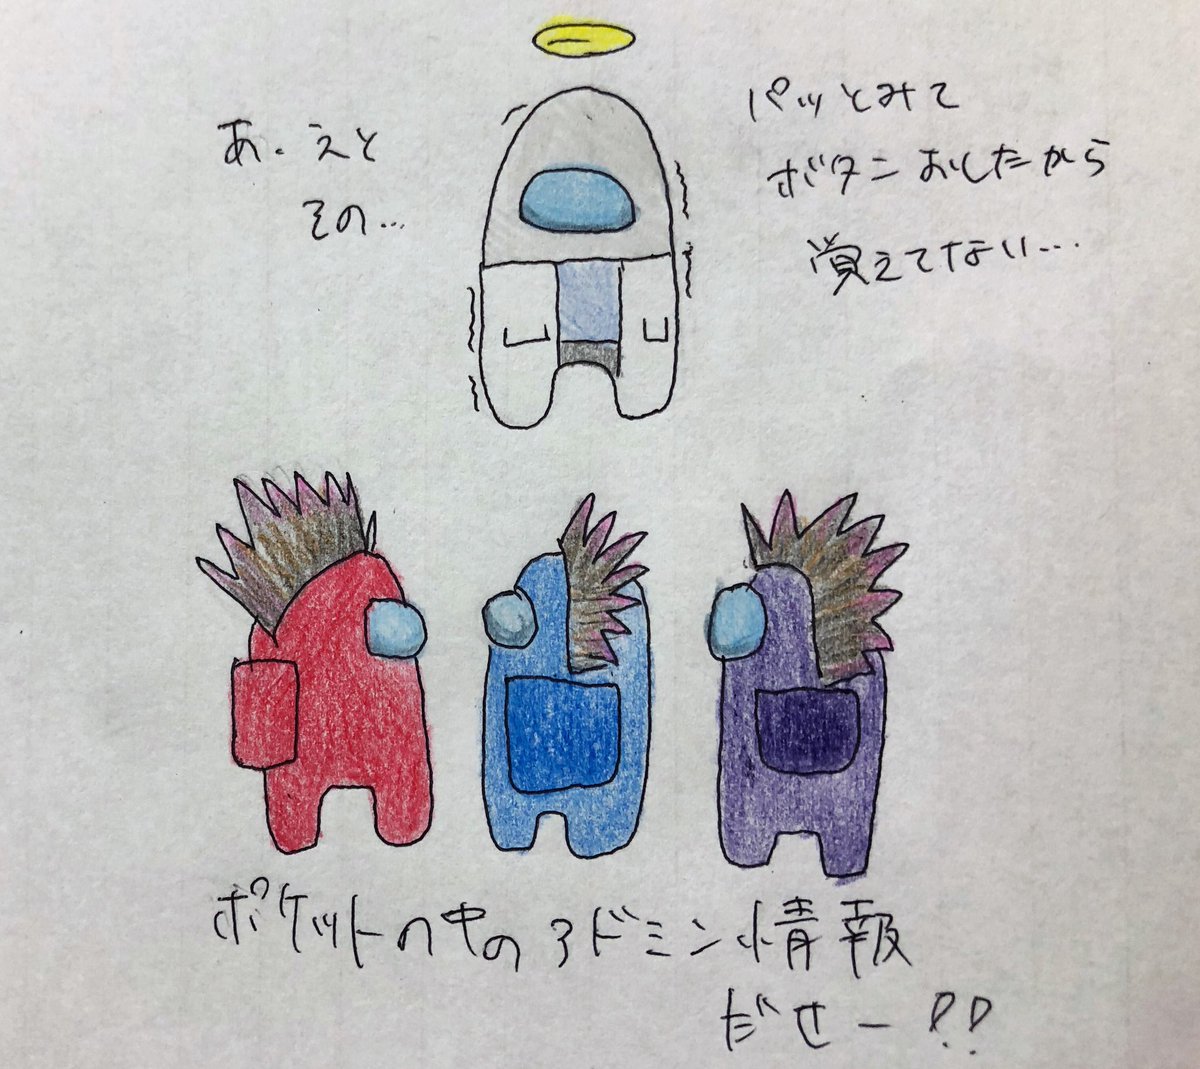 あ、えと
その…
パッとみて
ボタンおしたから
覚えてない…
ポケットの中の3ドミン情報
だせー!!